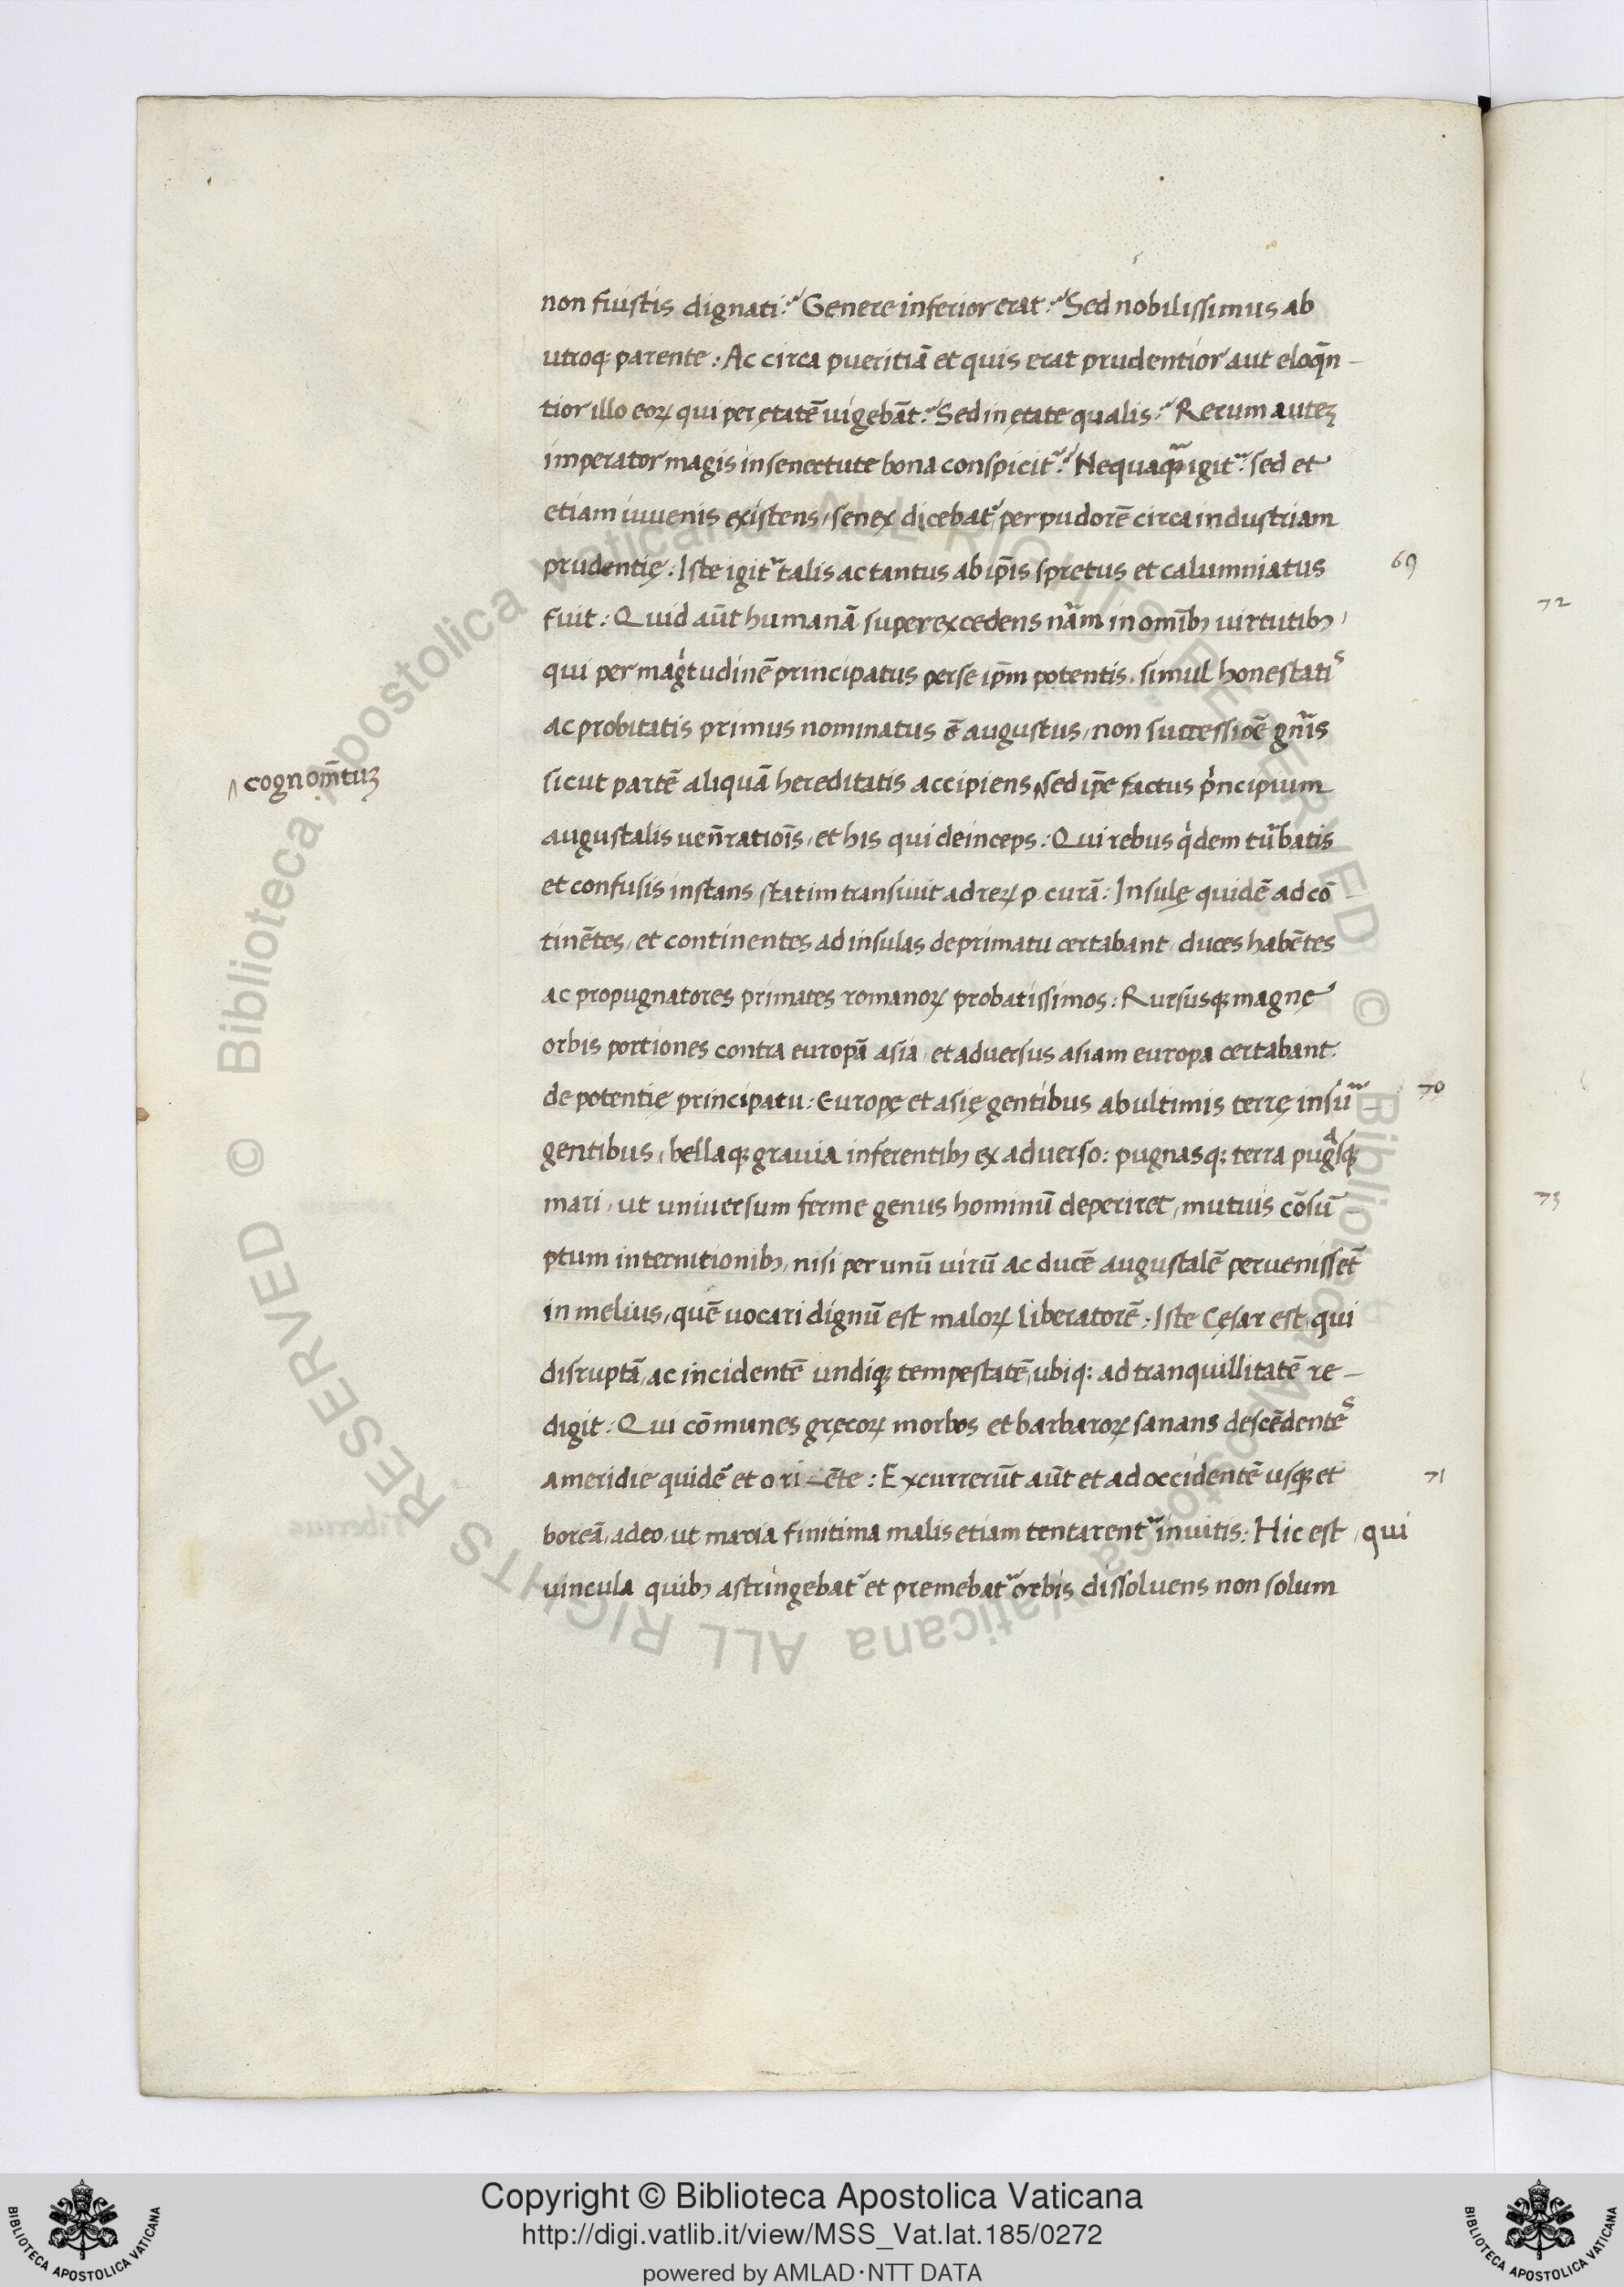 non fuistis dignati? Genere inferior erat? Sed nobilissimus ab
utroq; parente: Ac circa pueritiā et quis erat prudentior aut eloqūn-
tior illo eoꝝ qui per ętatē uigebāt? Sed in ętate qualis? Rerum auteꝫ
imperator magis in senectute bona conspicit᷑? Nequaꝙ̃ igit᷑: sed et
etiam iuuenis existens, senex dicebat᷑, per pudorē circa industriam
prudentię: Iste igit᷑ talis ac tantus ab ip̄is spretus et calumniatus
69
fuit: Quid aūt humanā superexcedens nām in omībꝫ uirtutibꝫ,
72
qui per magͥtudinē principatus per se ip̄m potentis, simul honestatiˢ
ac probitatis primus nominatus ē augustus, non successiōe gn̄is
^ cognom̄tuꝫ
sicut partē aliquā hereditatis accipiens ^ sed ip̄e factus pͥncipium
augustalis uen̄ratiōis, et his qui deinceps: Qui rebus qͥdem tūbatis
et confusis instans statim transiuit ad reꝝ p. curā: Insulę quidē ad cō
tinētes, et continentes ad insulas de primatu certabant, duces habētes
ac propugnatores primates romanoꝝ probatissimos: Rursusqꝫ magnę
orbis portiones contra europā asia, et aduersus asiam europa certabant.
de potentię principatu: Europę et asię gentibus ab ultimis terrę insū-
70
gentibus, bellaqꝫ grauia inferentibꝫ ex aduerso: pugnasq; terra pugᵃsqꝫ
mari, ut uniuersum ferme genus hominū deperiret, mutuis cōsū-
73
ptum internitionibꝫ, nisi per unū uirū ac ducē augustalē peruenisset̄
in melius, quē uocari dignū est maloꝝ liberatorē: Iste Cęsar est, qui
disruptā, ac incidentē undiqꝫ tempestatē, ubiq; ad tranquillitatē re-
digit: Qui cōmunes gręcoꝝ morbos et barbaroꝝ sanans descēdenteˢ
a meridie quidē et ori-ēte: Excurrerūt aūt et ad occidentē usqꝫ et
71
boreā, adeo, ut maria finitima malis etiam tentarent᷑ inuitis: Hic est, qui
uincula quibꝫ astringebat᷑ et premebat᷑ orbis dissoluens non solum
Copyright © Biblioteca Apostolica Vaticana
http://digi.vatlib.it/view/MSS_Vat.lat.185/0272
powered by AMLAD·NTT DATA
BIBLIOTECA APOSTOLICA VATICANA
BIBLIOTECA APOSTOLICA VATICANA
© Biblioteca Apostolica Vaticana ALL RIGHTS RESERVED © Biblioteca Apostolica Vaticana ALL RIGHTS RESERVED